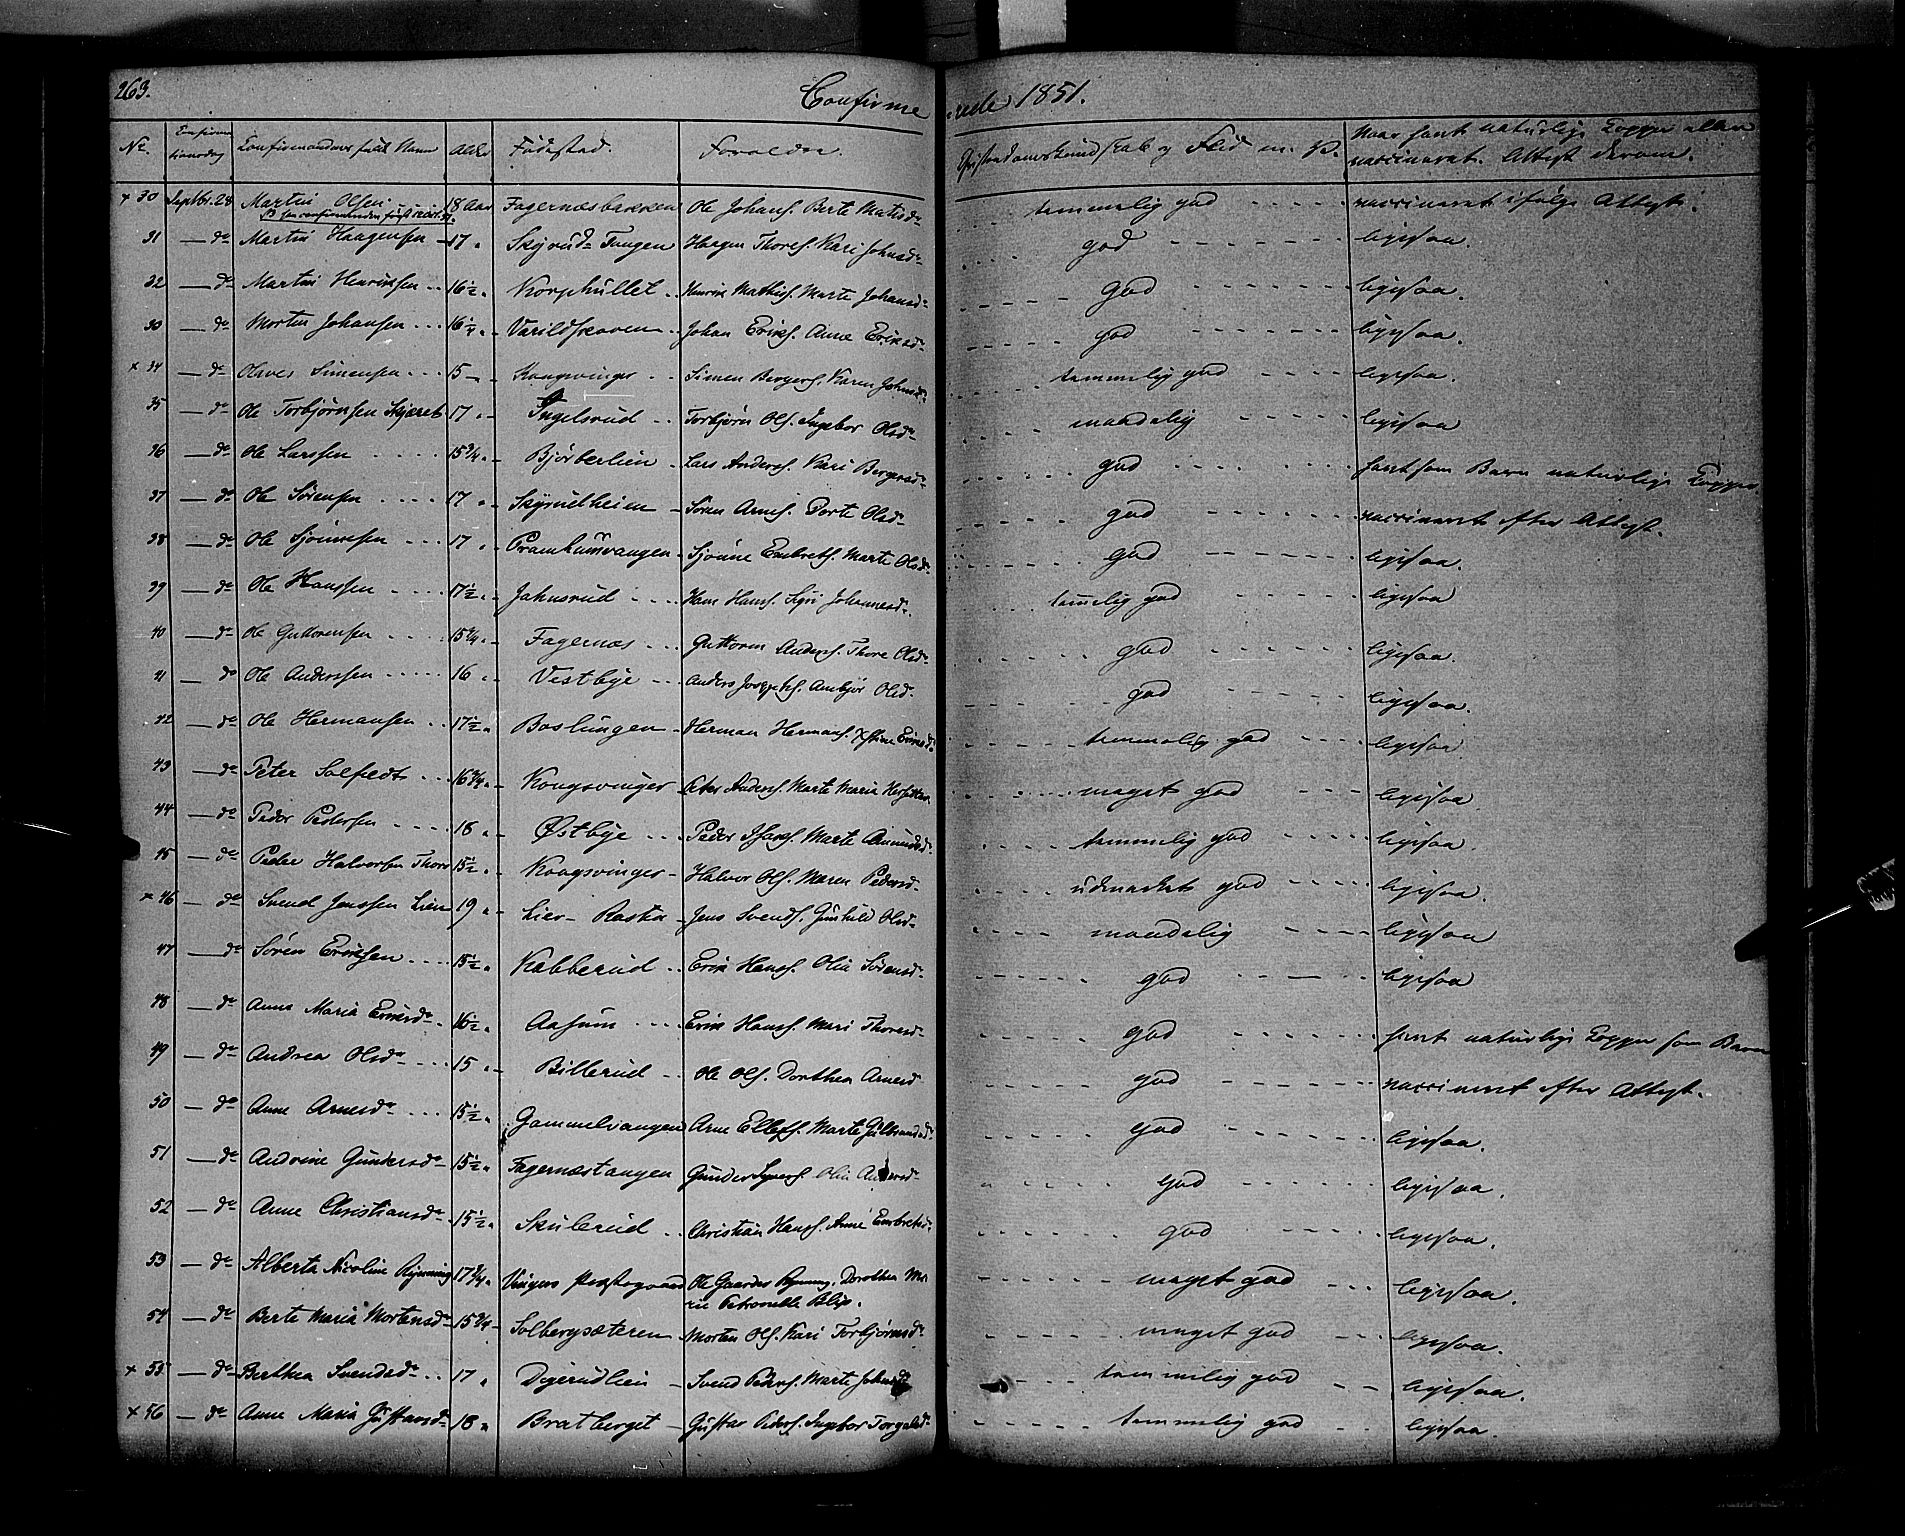 263.
Confirmerede 1851.
No. Confirmationsdag Konfirmandens fulde Navn Alder Fødested. Forældre. Christendomskundskab og Flid m. V. Naar havt naturlige Kopper eller vaccineret. Attest derom.
x 30 Septbr. 28 Martin Olsen 18 Aar Fagernæsbakken Ole Johans. Berte Matisdr temmelig god vaccineret ifølge Attest.
31 — do Martin Haagensen 17 " Skyrud Tangen Haagen Thores. Kari Johnsdr god ligesaa.
32 — do Martin Henriksen 16½ " Korphullet Henrik Mathis. Marte Johansdr god ligesaa.
30 — do Morten Johansen 16¼ " Varildskoven Johan Eriks. Anne Eriksdr god ligesaa.
x 34 — do Olaves Simensen 15 Kongsvinger Simen Bergers. Karen Johnsdr temmelig god ligesaa.
35 — do Ole Torbjørnsen Skjæret 17 " Ingelsrud Torbjørn Ols. Ingebor Olsdr maadelig ligesaa
36 — do Ole Larssen 15¾ " Bjørberlien Lars Anders. Kari Bergersdr god havt som Barn naturlige Kopper.
37 — do Ole Sørensen 17 " Skyrudheien Søren Arnes. Dorte Olsdr god vaccineret efter Attest.
38 — do Ole Sjønnesen 17 " Pramhusvangen Sjønne Embrets. Marte Olsdr god ligesaa.
39 — do Ole Hanssen 17½ " Jahnsrud Hans Hans. Sigri Johannesdr temelig god ligesaa
40 — do Ole Guttormsen 15¾ " Fagernæs Guttorm Anders. Thore Olsdr god ligesaa.
41 — do Ole Anderssen 16 " Vestbye Anders Josephs. Ambjør Olsd. god ligesaa.
42 — do Ole Hermansen 17½ " Baslungen Herman Hermans. Kjstine Eriksd. temmelig god ligesaa
43 — do Peter Solfeldt 16¾ " Kongsvinger Peter Anders. Marte Maria meget god ligesaa
44 — do Peder Pedersen 16 " Østbye Peder Marte Amundsd. temmelig god ligesaa.
45 — do Peder Halvorsen Thore 15½ " Kongsvinger Halvor Ols. Maren Pedersd. udmærket god ligesaa.
x 46 — do Svend Jenssen Lien 19 " Lier- Rasta Jens Svends. Gunhild Olsdr maadelig ligesaa
47 — do Søren Eriksen 15½ " Kabberud Erik Hans. Olia Sørensdr god ligesaa
48 — do Anne Maria Eriksdr 16½ " Aasum Erik Hans. Mari Thoresdr god havt naturlige Kopper som Barn
49 — do Andrea Olsdr 15 " Billerud Ole Ols. Dorthea Arnesd god vaccineret efter Attest.
50 — do Anne Arnesdr 15½ " Gammelvangen Arne Ellefs. Marte Gulbrandsdr god ligesaa.
51 — do Andrine Gundersdr 15½ " Fagernæstangen Gunder Syvers. Olia Andersdr god ligesaa.
52 — do Anne Christiansdr 15½ " Skulerud Christian Hans. Anne Embretsdr god ligesaa.
53 — do Alberta Nicoline Rynning 17¾ " Vingers Præstegaard Ole Gaarder Rynning. Dorothea Marie Petronelle Blix. meget god ligesaa.
54 — do Berte Maria Mortensdr 15¾ Solbergsæteren Morten Ols. Kari Torbjørnsdr meget god ligesaa.
x 55 — do Berthea Svendsdr 17 " Digerudlien Svend Peders. Marte Johnsdr temmelig god ligesaa.
x 56 — do Anne Maria Gustavsdr 18 " Bratberget Gustav Peders. Ingebor Torgalsdr temmelig god ligesaa.